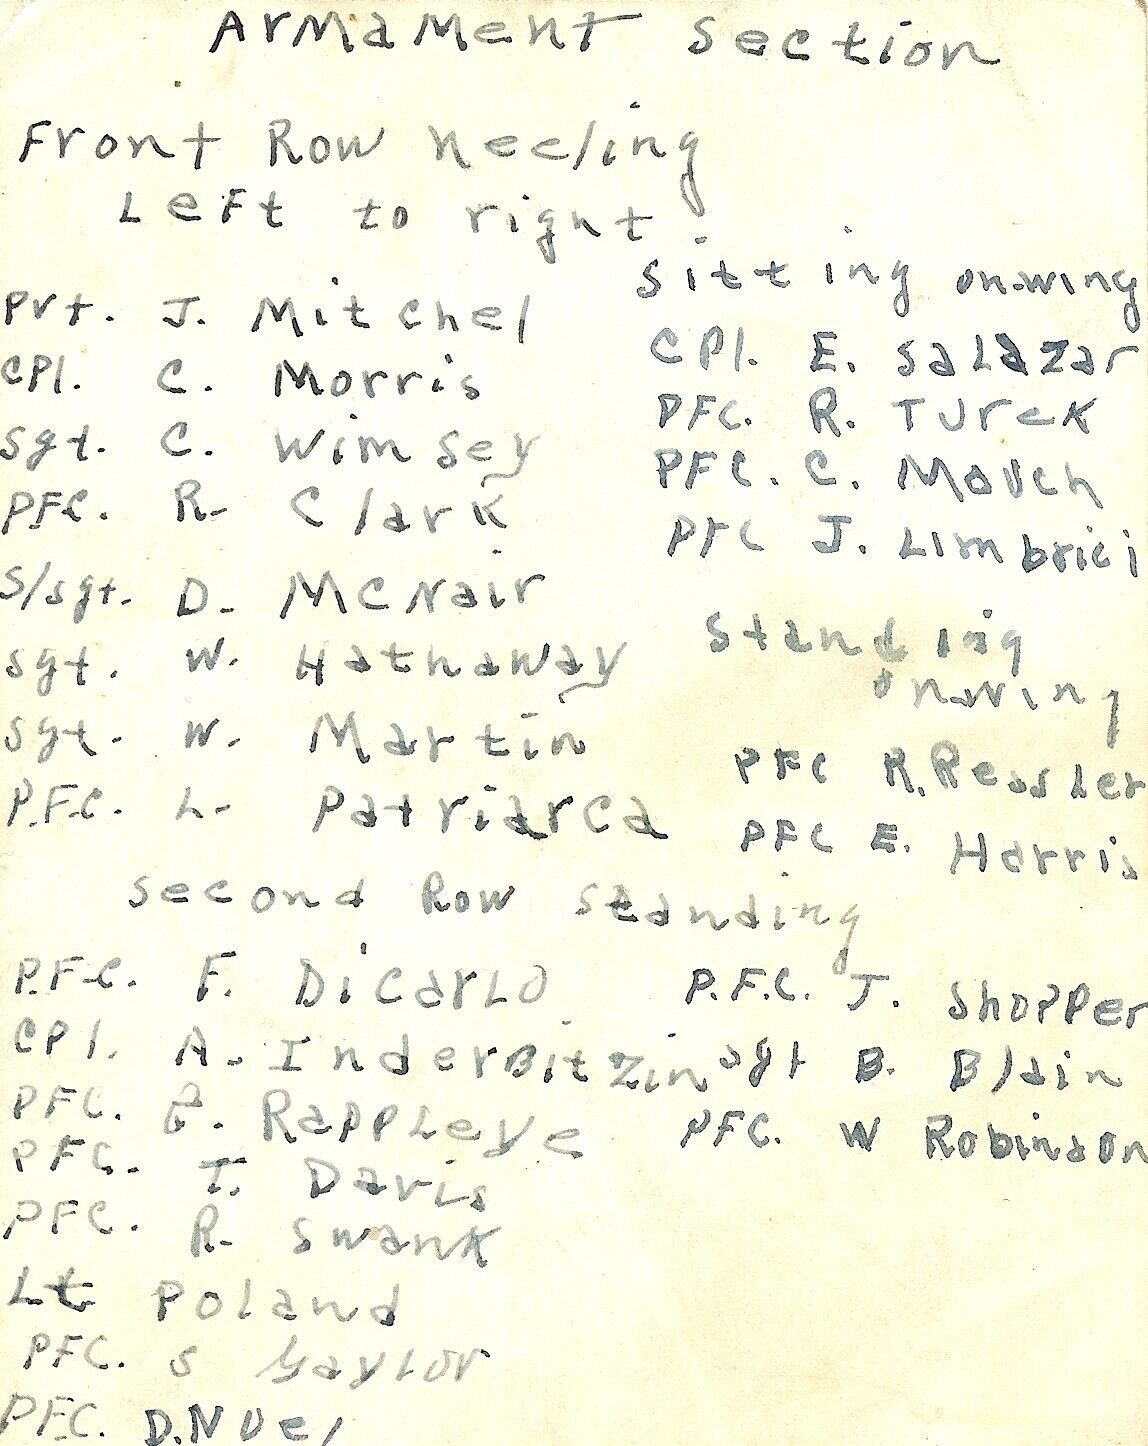 ArMaMent section
Front Row Neeling
Left to right
Pvt. J. Mitchel
CPl. C. Morris
sgt. C. Wimsey
PFC. R. Clark
S/sgt. D. McNair
sgt. W. Hathaway
sgt. W. Martin
P.F.C. L. Patriarca
sitting on-wing
CPl. E. SaLazar
PFC. R. Turck
PFC. C. Mauch
PFC J. Limbrici
standing
onwing
PFC R. Ressler
PFC E. Harris
second Row standing
P.F.C. F. DiCarLo
CPl. A. InderBitzin
PFC. Rappleye
PFC. T. Davis
PFC. R. Swank
Lt Poland
PFC. S Gaylor
PFC. D. Nuel
P.F.C. J. Shopper
sgt B. Blain
PFC. W Robinson